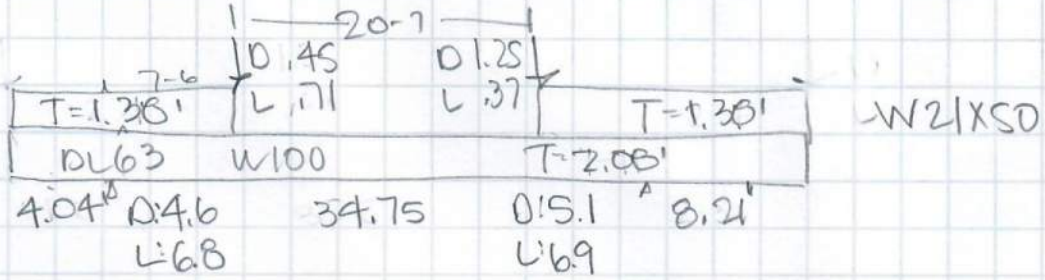 20-7
D .45 D 1.25
7-6
T=1.38' L .71 L .37 T=1.38' W21X50
DL63 W100 T=2.08'
4.04' D:4.6 34.75 D:5.1 8.21'
L:6.8 L:6.9